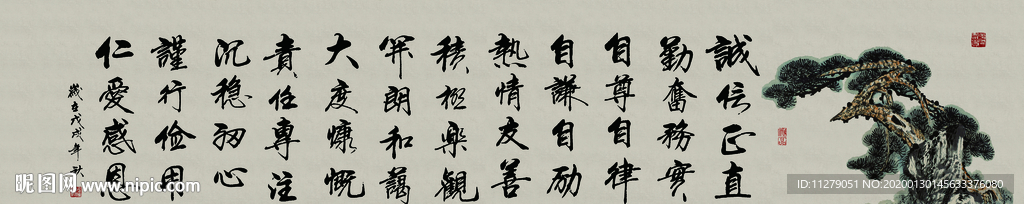 誠信正直
勤奮務實
自尊自律
自謙自励
熱情友善
積極樂觀
開朗和藹
大度慷慨
責任專注
沉穏初心
謹行儉用
仁愛感恩
歲在戊戌年秋
昵图网 www.nipic.com
ID:11279051 NO:20200130145633376080